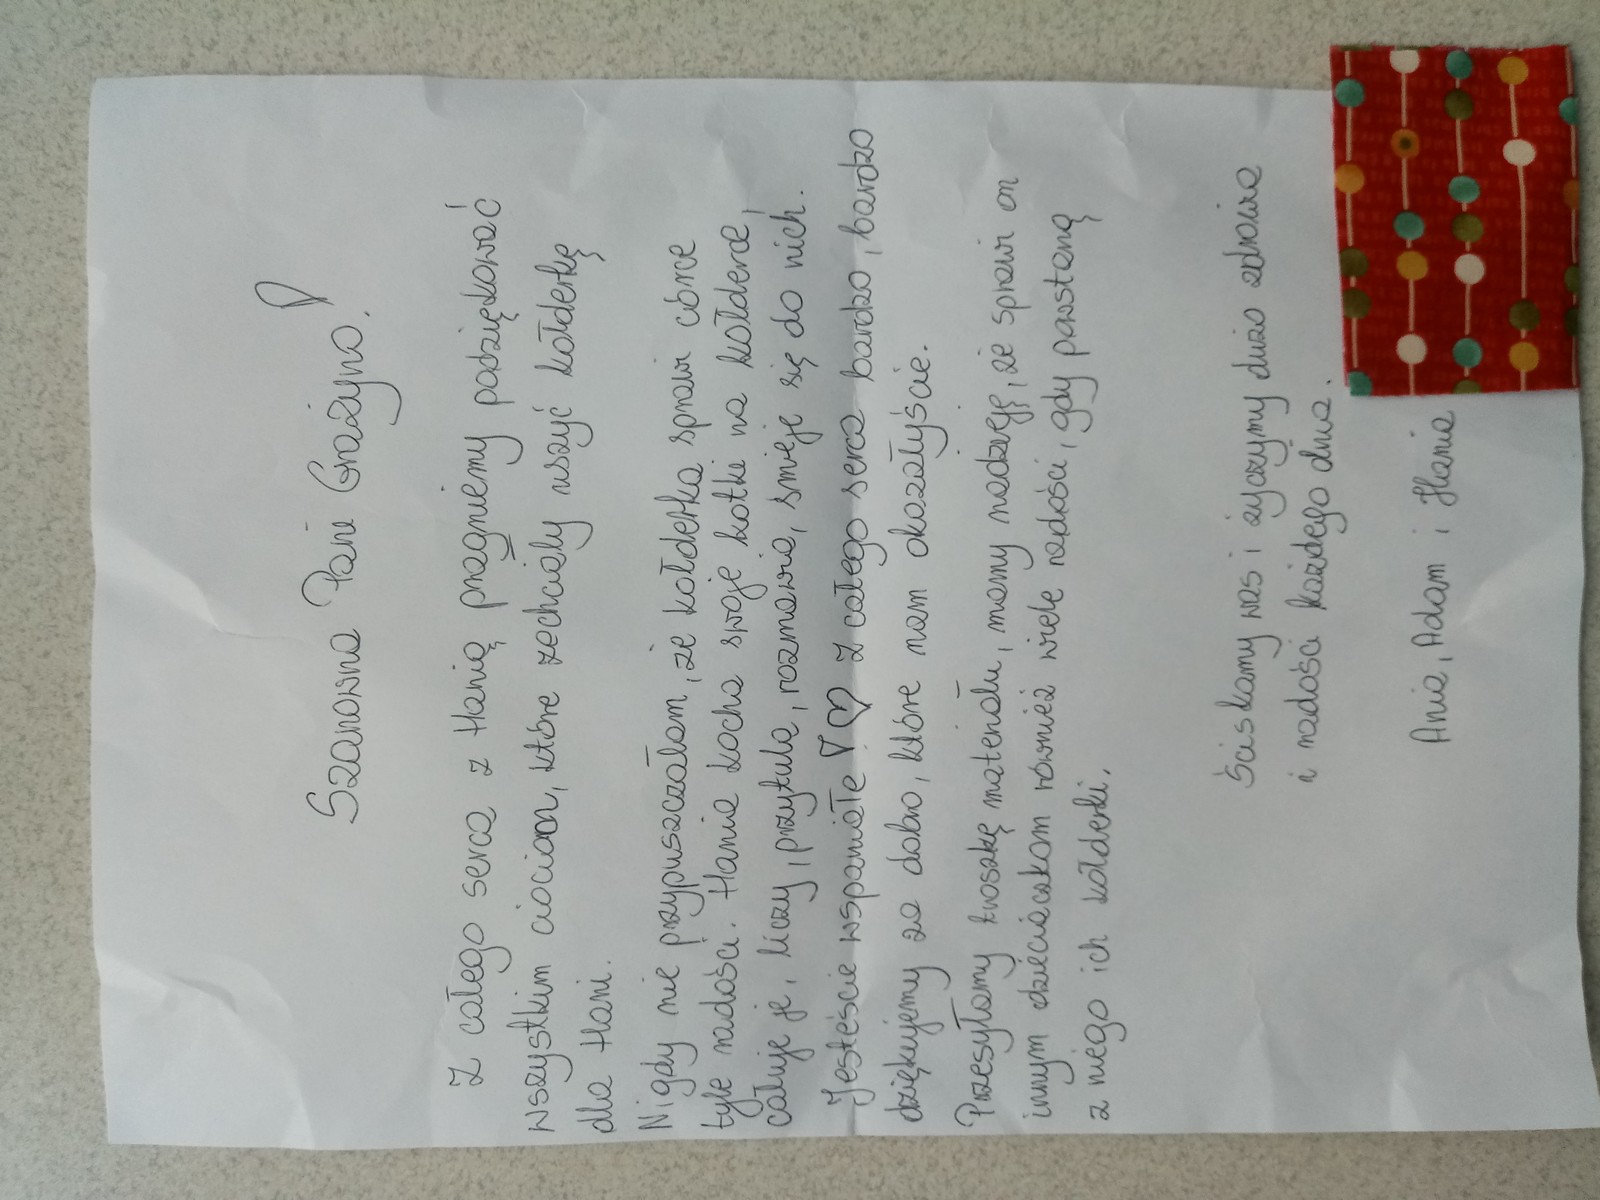 Szanowna Pani Grażyno!
Z całego serca z Hanią pragniemy podziękować
wszystkim ciociom, które zechciały uszyć kołderkę
dla Hani.
Nigdy nie przypuszczałam, że kołderka sprawi córce
tyle radości. Hania kocha swoje kotki na kołderce,
całuje je, liczy, przytula, rozmawia, śmieje się do nich.
Jesteście wspaniałe! ♡ Z całego serca bardzo, bardzo
dziękujemy za dobro, które nam okazałyście.
Przesyłamy troszkę materiału, mamy nadzieję, że sprawi on
innym dzieciaczkom również wiele radości, gdy powstaną
z niego ich kołderki.
Ściskamy was i życzymy dużo zdrowia
i radości każdego dnia.
Ania, Adam i Hania